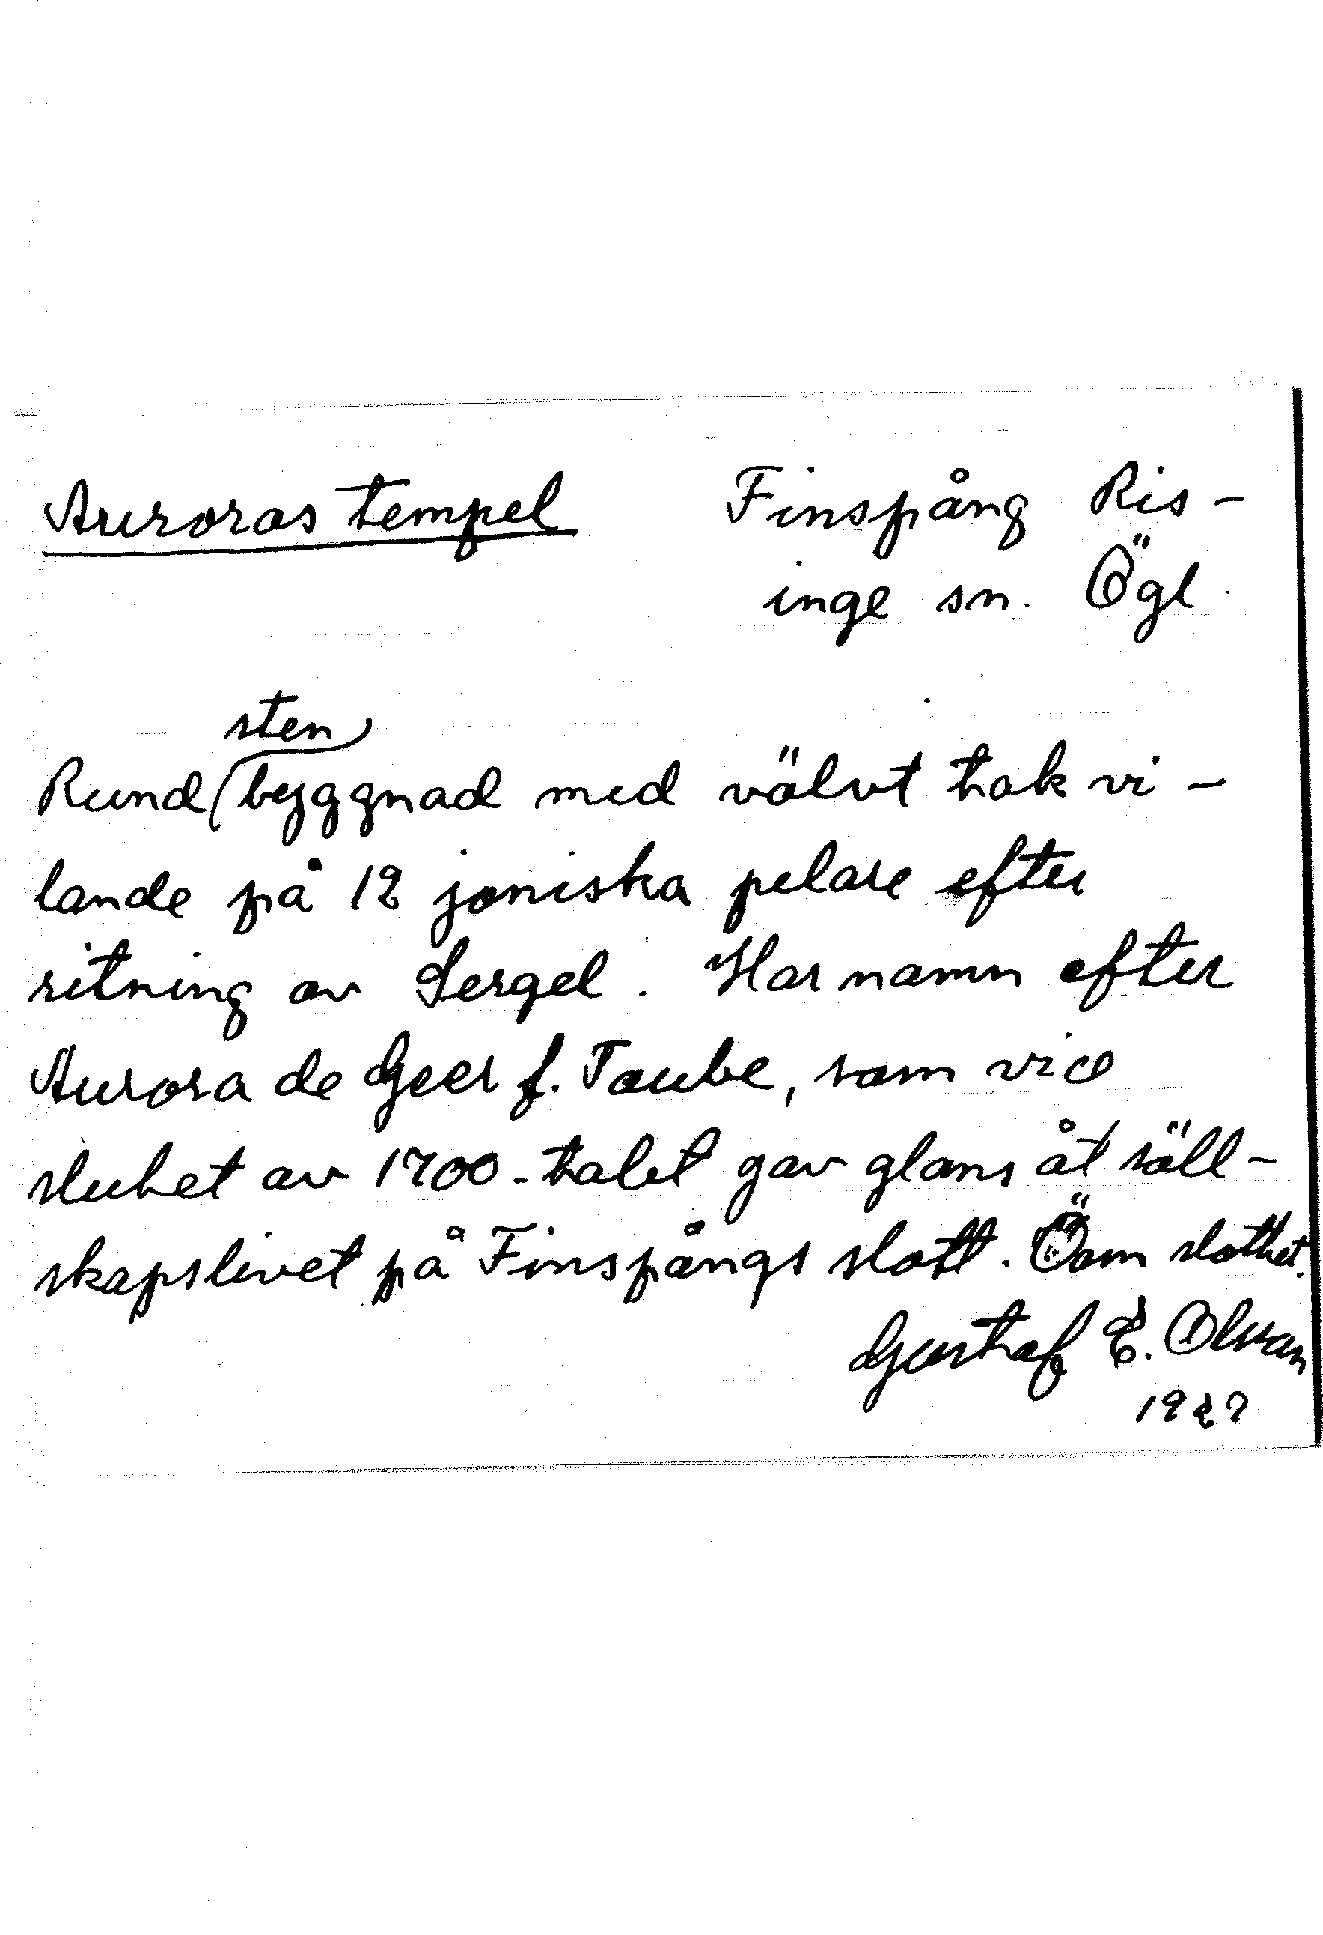 Auroras tempel Finspång Ris-
inge sn. Ögl.
sten
Rund byggnad med välvt tak vi-
lande på 12 joniska pelare efter
ritning av Sergel. Har namn efter
Aurora de Geer f. Taube, som vid
slutet av 1700-talet gav glans åt säll-
skapslivet på Finspångs slott. Öom slottet.
Gustaf E. Olsson